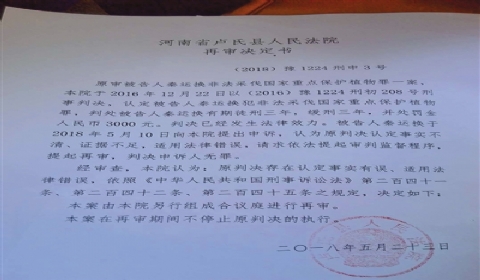 河南省卢氏县人民法院
再审决定书
（2018）豫1224刑申3号
原审被告人秦运换非法采伐国家重点保护植物罪一案，
本院于2016年12月22日以（2016）豫1224刑初208号刑
事判决，认定被告人秦运换犯非法采伐国家重点保护植物
罪，判处被告人秦运换有期徒刑三年，缓刑三年，并处罚金
人民币3000元。判决已经发生法律效力。被告人秦运换于
2018年5月10日向本院提出申诉，认为原判决认定事实不
清，证据不足，适用法律错误，请求依法提起审判监督程序，
提起再审，判决申诉人无罪。
经审查，本院认为：原判决存在认定事实有误、适用法
律错误，依照《中华人民共和国刑事诉讼法》第二百四十一
条、第二百四十二条、第二百四十五条之规定，决定如下：
本案由本院另行组成合议庭进行再审。
本案在再审期间不停止原判决的执行。
二〇一八年五月二十三日